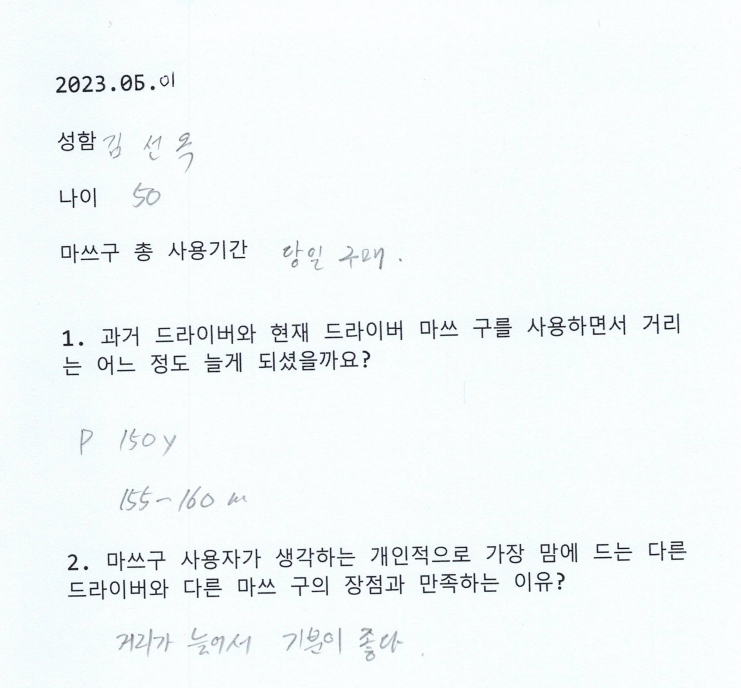 2023.05.01
성함 김 선 옥
나이 50
마쓰구 총 사용기간 당일 구매.
1. 과거 드라이버와 현재 드라이버 마쓰 구를 사용하면서 거리
는 어느 정도 늘게 되셨을까요?
P 150y
155~160 m
2. 마쓰구 사용자가 생각하는 개인적으로 가장 맘에 드는 다른
드라이버와 다른 마쓰 구의 장점과 만족하는 이유?
거리가 늘어서 기분이 좋다.